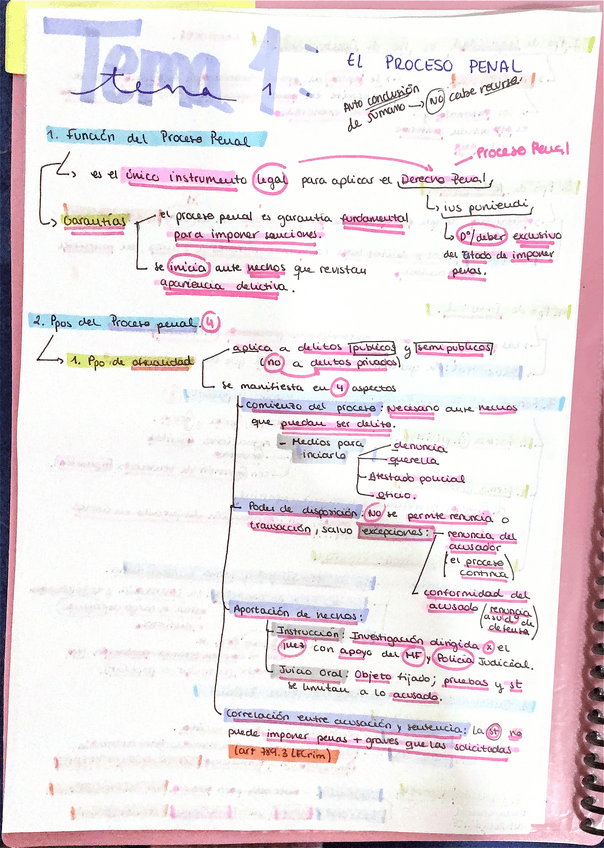 Tema 1:
tema 1
EL PROCESO PENAL
Auto conclusión
de sumario → NO cabe recurso.
1. Función del Proceso Penal
Proceso Penal
es el único instrumento legal para aplicar el Derecho Penal,
ius puniendi,
Dº/deber exclusivo
del Estado de imponer
penas.
Garantías
el proceso penal es garantía fundamental
para imponer sanciones.
se inicia ante hechos que revistan
apariencia delictiva.
2. Ppos del Proceso penal. 4
1. Ppo de oficialidad
aplica a delitos públicos y semipúblicos
(no a delitos privados)
se manifiesta en 4 aspectos
Comienzo del proceso: Necesario ante hechos
que puedan ser delito.
- Medios para
iniciarlo
denuncia
querella
Atestado policial
oficio.
Poder de disposición: NO se permite renuncia o
transacción, salvo excepciones:
renuncia del
acusador
(el proceso
continua)
conformidad del
acusado (renuncia
a su dº de
defensa)
Aportación de hechos:
Instrucción: Investigación dirigida x el
juez con apoyo del MF y Policía Judicial.
Juicio Oral: Objeto fijado; pruebas y st
se limitan a lo acusado.
Correlación entre acusación y sentencia: la st no
puede imponer penas + graves que las solicitadas
(art 789.3 LECrim)